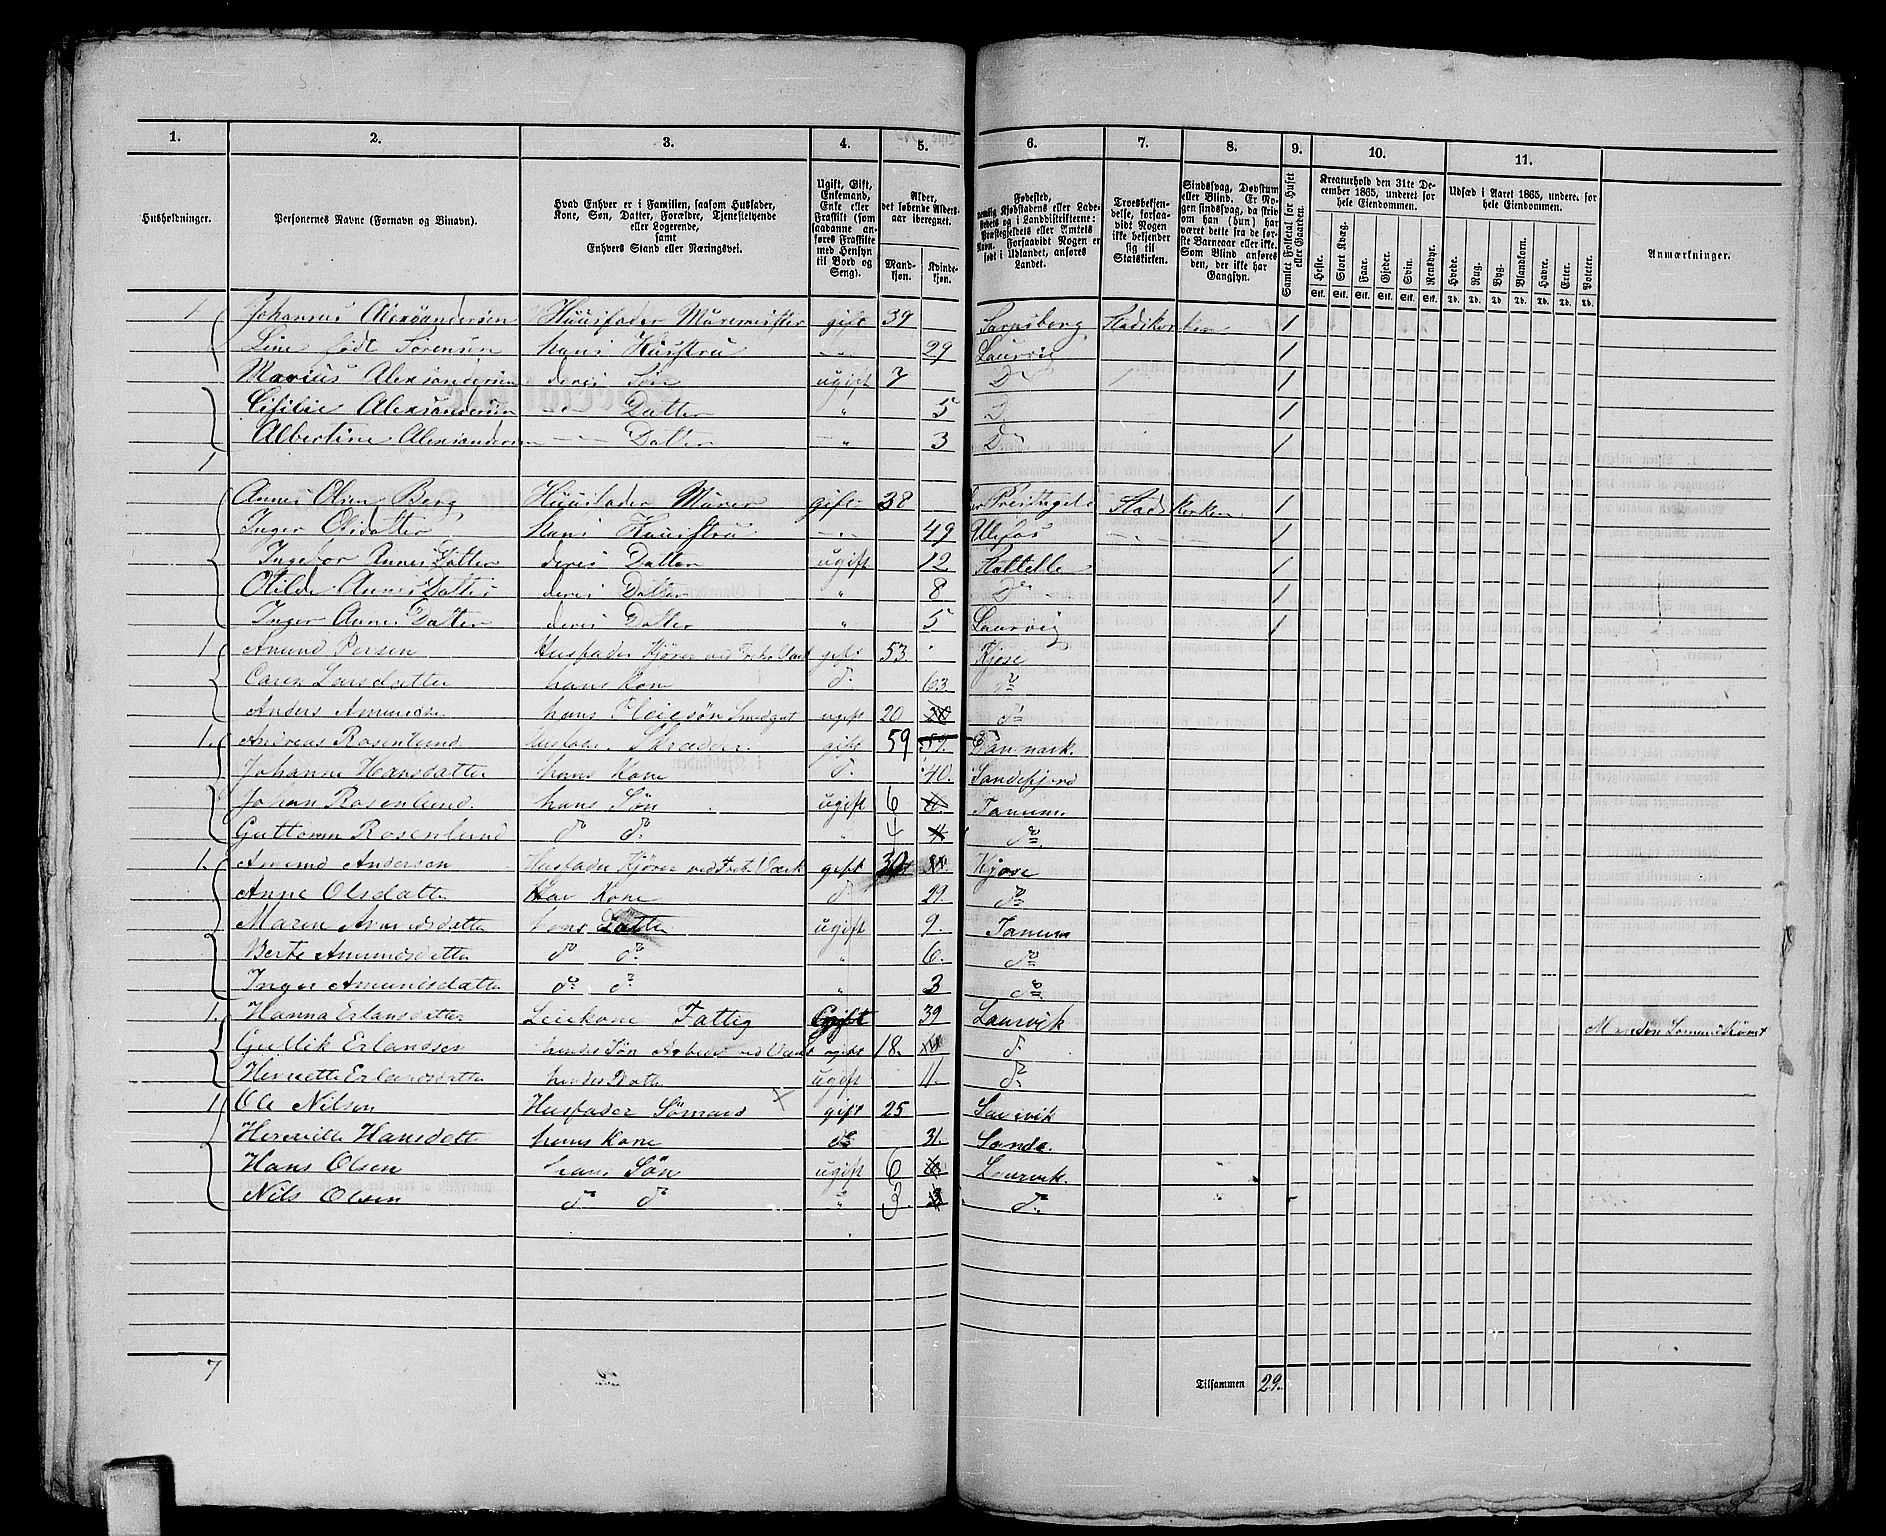 1. 2. 3. 4. 5. 6. 7. 8. 9. 10. 11.
Husholdninger.
Personernes Navne (Fornavn og Binavn).
Hvad Enhver er i Familien, saasom Husfader,
Kone, Søn, Datter, Forældre, Tjenestetyende
eller Logerende,
samt
Enhvers Stand eller Næringsvei.
Ugift, Gift,
Enkemand,
Enke eller
Fraskilt (som
saadanne an-
føres Fraskilte
med Hensyn
til Bord og
Seng).
Alder,
det løbende Alders-
aar iberegnet.
Mand-
kjøn.
Kvinde-
kjøn.
Fødested,
Landet.
Troesbekjen-
delse, forsaa-
vidt Nogen
ikke bekjender
sig til
Statskirken.
Sindssvag, Døvstum
eller Blind. Er No-
gen sindssvag, da skriv
om han (hun) har
været det fra de før-
ste Barneaar eller ikke.
Som Blind anføres
den, der ikke har
Gangsyn.
Samlet Folketal for Huset
eller Gaarden.
Kreaturhold den 31te De-
cember 1865, underet for
hele Eiendommen.
Heste. Stort Kvæg. Faar. Gjeder. Svin. Rensdyr.
Stk. Stk. Stk. Stk. Stk. Stk.
Udsæd i Aaret 1865, undere. for
hele Eiendommen.
Hvede. Rug. Byg. Blandkorn. Havre. Erter. Poteter.
Td. Td. Td. Td. Td. Td. Td.
Anmærkninger.
1 Johannes Alexsandersen Huusfader Muremester gift 39 Sarpsborg Stadskerken 1
Line født Sørensen hans Huustru 29 Laurvig 1
Marius Alexsandersen deres Søn ugift 7 D 1
Cesilie Alexsandersen Datter " 5 D 1
Albertine Alexsandersen Datter " 3 D 1
1
Annes Olsen Berg Huusfader Murer gift 38 Stadskerken 1
Inger Olsdatter Hans Huustru 49 Ulefos 1
Ingebor AnnesDatter deres Datter ugift 12 Holtelle 1
Otilde AnnesDatter deres Datter " 8 Do 1
Inger AnnesDatter deres Datter " 5 Laurvig 1
1 Amund Persen Husfader Kjører ved gift 53. Kjose
Caren Larsdatter hans Kone do. 63. do
Anders Amundsen hans Pleiesøn ugift 20 do
1. Andreas Rosenlund Husfader Skrædder. gift 59 Danmark.
Johanne Hansdatter hans Kone do. 40. Sandefjord
Johan Rosenlund. hans Søn ugift 6 Tanum.
Guttorm Rosenlund do do. " 4 do.
1. Amund Andersen Husfader Kjører ved Værk gift 30 Kjose
Anne Olsdatter Kone do 29. do
Maren Amundsdatter hans Datter ugift 9. Tanum
Berte Amundsdatter do do. " 6. do
Inger Amundsdatter do do. " 3 do
1. Hanna Erlansdatter Leiekone Fattig Gift 39 Laurvik
Gullik Erlandsen hendes Søn ugift 18. do.
Henriette Erlandsdatter hendes Datter ugift 11. do.
1 Ole Nilsen Husfader Sømand × gift 25 Laurvik
Henriette Hansdatt hans Kone do 31. Sande.
Hans Olsen hans Søn ugift 6 Laurvik.
Nils Olsen do do " 3. do.
7 Tilsammen 29.